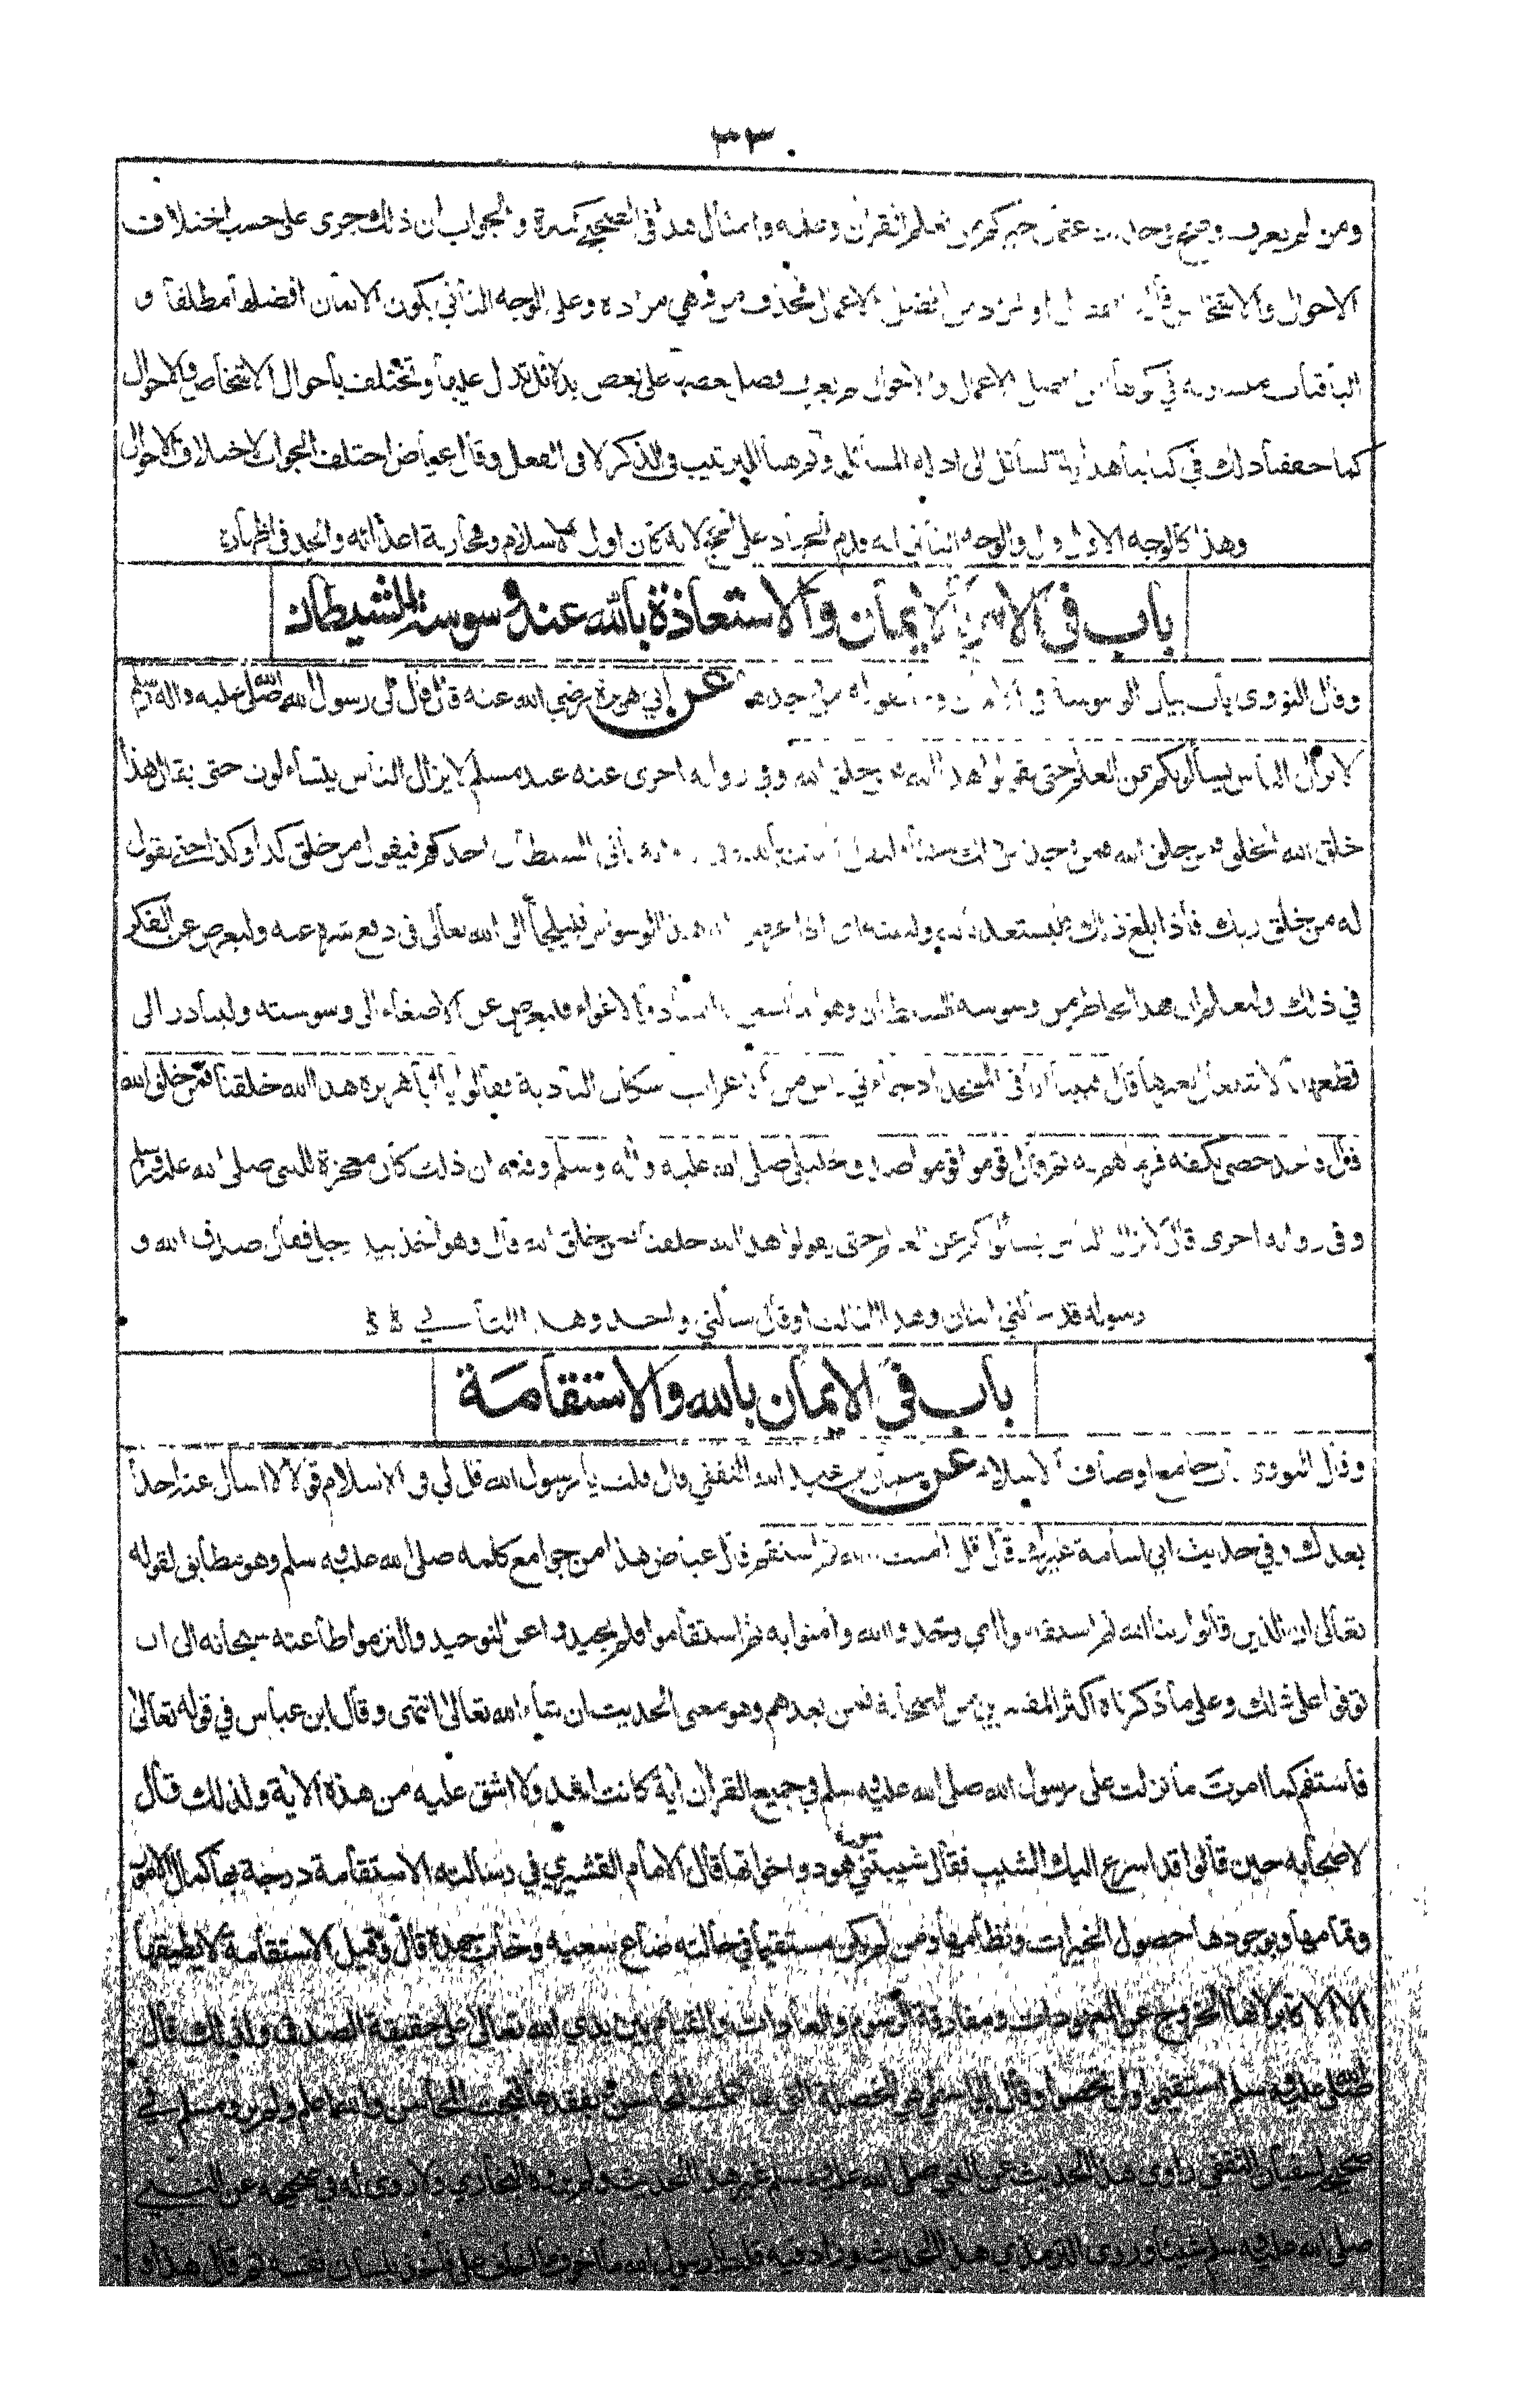 ٣٣
ومن لم يعرف وصح وخيركم من تعلم القران وعلمه وامثال هذا فى الصحيح كثيرة والجواب ان ذلك جرى على حسب اختلاف
الاحوال والاشخاص من افضل الاعمال فحذف من وهي مراده وعلى الوجه الثاني يكون الايمان افضلها مطلقا و
الباقيات متساويه في كونها من افضل الاعمال والاحوال ثم يعرف فضل بعضها على بعض بدلائل تدل عليها وتختلف باحوال الاشخاص والاحوال
كما حققنا ذلك في كتابنا هداية السائل الى ادلة المسائل وثم هنا للترتيب فى الذكر لا فى الفعل وقال عياض اختلف الجواب لاختلاف الاحوال
وهذا كالوجه الاول والوجه الثانى انه قدم الجهاد على الحج لانه كان اول الاسلام ومحاربة اعدائه والجد فى اظهاره
باب فى الامر بالايمان والاستعاذة بالله عند وسوسة الشيطان
وقال النووى باب بيان الوسوسة في الايمان وما يقوله من وجدها عن أبي هريرة رضي الله عنه قال قال لى رسول الله صلى الله عليه واله وسلم
لا يزال الناس يسألونكم عن العلم حتى يقولوا هذا الله فمن خلق الله وفي رواية اخرى عنه عند مسلم لا يزال الناس يتساءلون حتى يقال هذا
خلق الله الخلق فمن خلق الله فمن وجد من ذلك شيئا فليقل امنت بالله وفى رواية يأتى الشيطان احدكم فيقول من خلق كذا وكذا حتى يقول
له من خلق ربك فاذا بلغ ذلك فليستعذ بالله ولينته اى اذا عرض له هذا الوسواس فليلجأ الى الله تعالى فى دفع شره عنه وليعرض عن الفكر
في ذلك وليعلم ان هذا الخاطر من وسوسة الشيطان وهو انما يسعى بالفساد والاغواء فليعرض عن الاصغاء الى وسوسته وليبادر الى
قطعها بالاشتغال بغيرها قال فبينا انا فى المسجد اذ جاءني ناس من الاعراب سكان البادية فقالوا يا ابا هريرة هذا الله خلقنا فمن خلق الله
قال فاخذ حصى بكفه فرماهم به ثم قال قوموا قوموا صدق خليلي صلى الله عليه واله وسلم وفيه ان ذلك كان معجزة للنبى صلى الله عليه وسلم
وفى رواية اخرى قال لا يزال الناس يسألونكم عن العلم حتى يقولوا هذا الله خلقنا فمن خلق الله قال وهو اخذ بيد رجل فقال صدق الله و
رسوله قد سألني اثنان وهذا الثالث او قال سألني واحد وهذا الثاني
باب فى الايمان بالله والاستقامة
وقال النووى باب جامع اوصاف الاسلام عن سفيان بن عبد الله الثقفي قال قلت يا رسول الله قل لي فى الاسلام قولا لا اسأل عنه احدا
بعدك وفي حديث ابي اسامة غيرك قال قل امنت بالله ثم استقم قال عياض هذا من جوامع كلمه صلى الله عليه وسلم وهو مطابق لقوله
تعالى ان الذين قالوا ربنا الله ثم استقاموا اى وحدوا الله وامنوا به ثم استقاموا فلم يحيدوا عن التوحيد والتزموا طاعته سبحانه الى ان
توفوا على ذلك وعلى ما ذكرناه اكثر المفسرين من الصحابة فمن بعدهم وهو معنى الحديث ان شاء الله تعالى انتهى وقال ابن عباس في قوله تعالى
فاستقم كما امرت ما نزلت على رسول الله صلى الله عليه وسلم في جميع القران اية كانت اشد ولا اشق عليه من هذه الاية ولذلك قال
لاصحابه حين قالوا قد اسرع اليك الشيب فقال شيبتني سورة هود واخواتها قال الامام القشيري في رسالته الاستقامة درجة بها كمال الامور
وتمامها وبوجودها حصول الخيرات ونظامها ومن لم يكن مستقيما في حالته ضاع سعيه وخاب جهده قال وقيل الاستقامة لا يطيقها
الا الاكابر لانها الخروج عن المعهودات ومفارقة الرسوم والعادات والقيام بين يدي الله تعالى على حقيقة الصدق ولذلك قال
صلى الله عليه وسلم استقيموا ولن تحصوا وقال الواسطي هي الخصلة التي بها كملت المحاسن وبفقدها قبحت المحاسن والله اعلم ولم يرو مسلم في
صحيحه لسفيان الثقفي راوى هذا الحديث عن النبي صلى الله عليه وسلم غير هذا الحديث ولم يروه البخاري ولا روى له في صحيحه عن النبي
صلى الله عليه وسلم شيئا وروى الترمذي هذا الحديث وزاد فيه قلت يا رسول الله ما اخوف ما تخاف علي فأخذ بلسان نفسه ثم قال هذا و